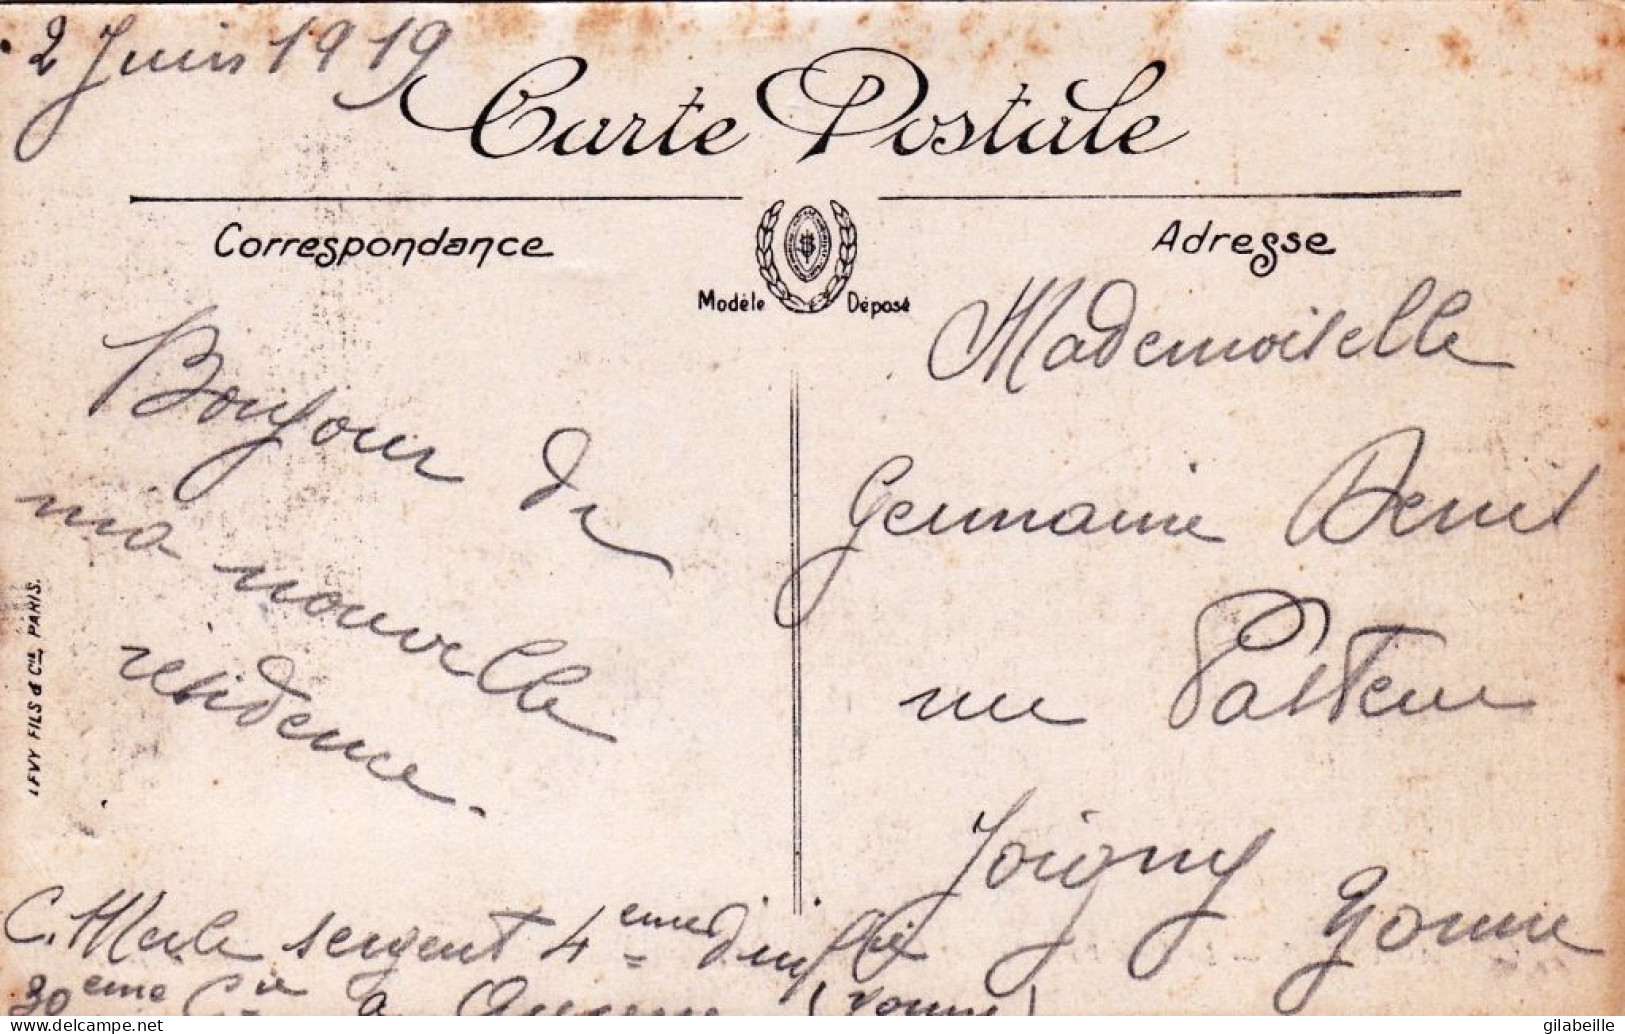 2 Juin 1919
Carte Postale
Correspondance
Adresse
Modèle Déposé
Bonjour de
ma nouvelle
résidence.
Mademoiselle
Germaine Benoit
rue Pasteur
Joigny
Yonne
C. Merle sergent 4eme d'inf
30eme Cie à Auxerre (Yonne)
LEVY FILS & Cie PARIS.
gilabeille